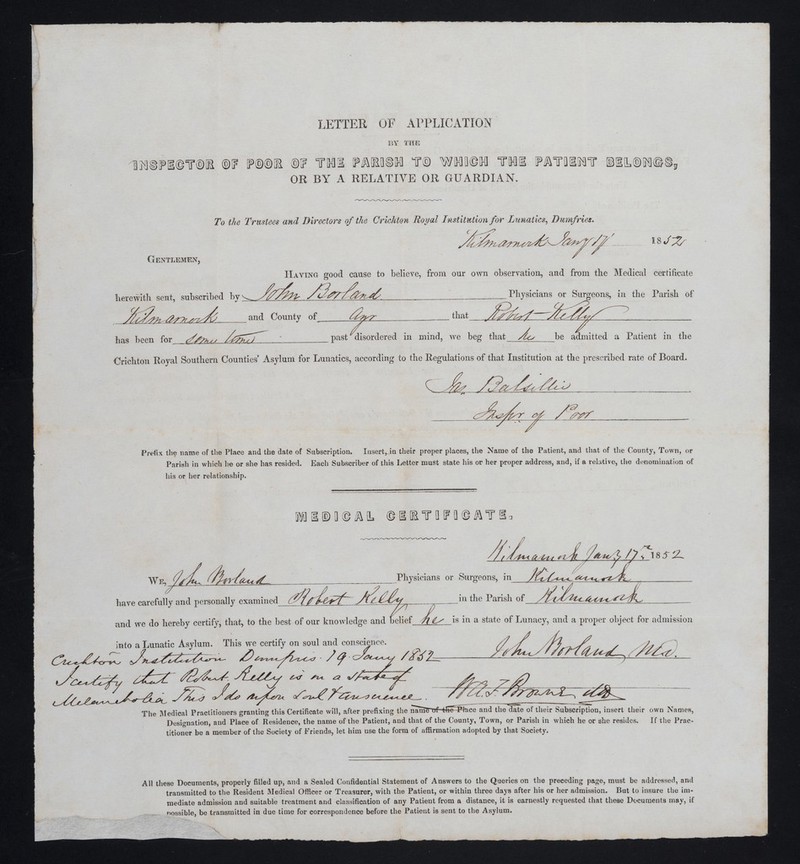 LETTER OF APPLICATION
BY THE
INSPECTOR OF POOR OF THE PARISH TO WHICH THE PATIENT BELONGS,
OR BY A RELATIVE OR GUARDIAN.
To the Trustees and Directors of the Crichton Royal Institution for Lunatics, Dumfries.
Kilmarnock Jany 17 1852
GENTLEMEN,
HAVING good cause to believe, from our own observation, and from the Medical certificate
herewith sent, subscribed by John Borland Physicians or Surgeons, in the Parish of
Kilmarnock and County of Ayr that Robert Kelly
has been for some time past disordered in mind, we beg that he be admitted a Patient in the
Crichton Royal Southern Counties' Asylum for Lunatics, according to the Regulations of that Institution at the prescribed rate of Board.
Jas. Balsillie
Inspr of Poor
Prefix the name of the Place and the date of Subscription. Insert, in their proper places, the Name of the Patient, and that of the County, Town, or
Parish in which he or she has resided. Each Subscriber of this Letter must state his or her proper address, and, if a relative, the denomination of
his or her relationship.
MEDICAL CERTIFICATE.
Kilmarnock Jany 17 1852
WE, John Borland Physicians or Surgeons, in Kilmarnock
have carefully and personally examined Robert Kelly in the Parish of Kilmarnock
and we do hereby certify, that, to the best of our knowledge and belief he is in a state of Lunacy, and a proper object for admission
into a Lunatic Asylum. This we certify on soul and conscience.
John Borland, M.D.
Crichton Institution Dumfries 19 Jany 1852
I certify that Robert Kelly is in a state of
Melancholia This I do upon Soul & Conscience. W.A.F. Browne MD
The Medical Practitioners granting this Certificate will, after prefixing the name of the Place and the date of their Subscription, insert their own Names,
Designation, and Place of Residence, the name of the Patient, and that of the County, Town, or Parish in which he or she resides. If the Prac-
titioner be a member of the Society of Friends, let him use the form of affirmation adopted by that Society.
All these Documents, properly filled up, and a Sealed Confidential Statement of Answers to the Queries on the preceding page, must be addressed, and
transmitted to the Resident Medical Officer or Treasurer, with the Patient, or within three days after his or her admission. But to insure the im-
mediate admission and suitable treatment and classification of any Patient from a distance, it is earnestly requested that these Documents may, if
possible, be transmitted in due time for correspondence before the Patient is sent to the Asylum.